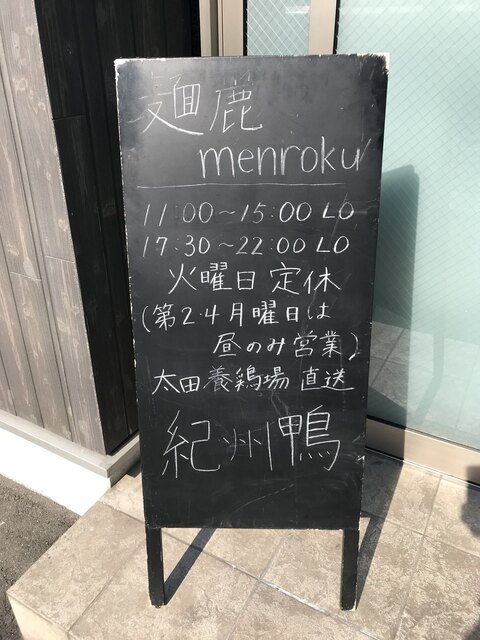 麺鹿
menroku
11:00～15:00 LO
17:30～22:00 LO
火曜日定休
(第2・4月曜日は
昼のみ営業)
太田養鶏場 直送
紀州鴨